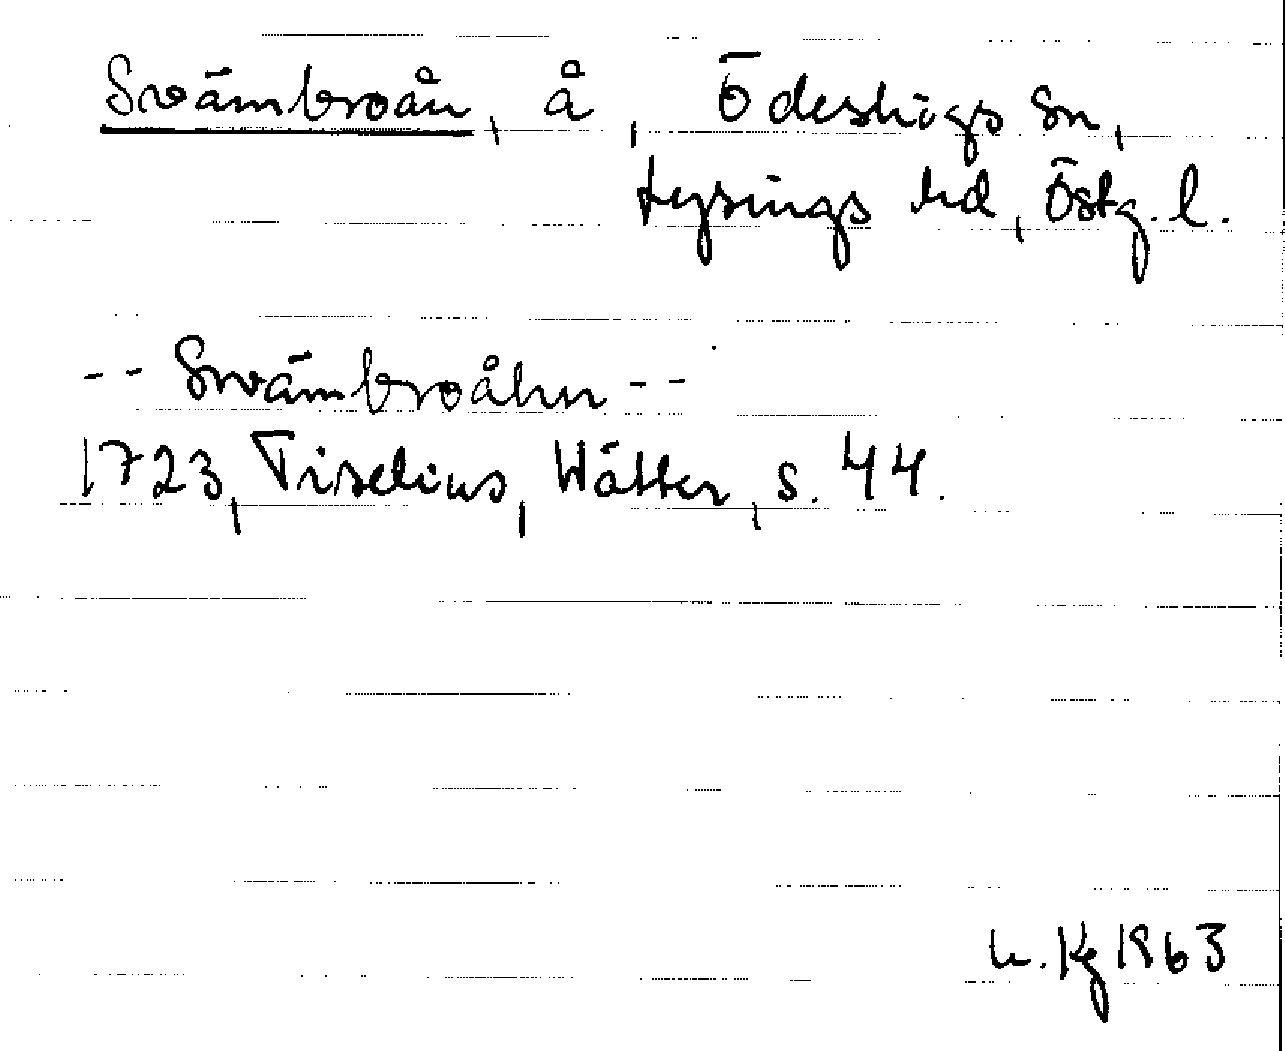 Svämbroån, å, Ödeshögs sn,
Lysings hd, Östg. l.
-- Swämbroåhn --
1723, Tiselius, Wätter, s. 44.
h. Kg 1963